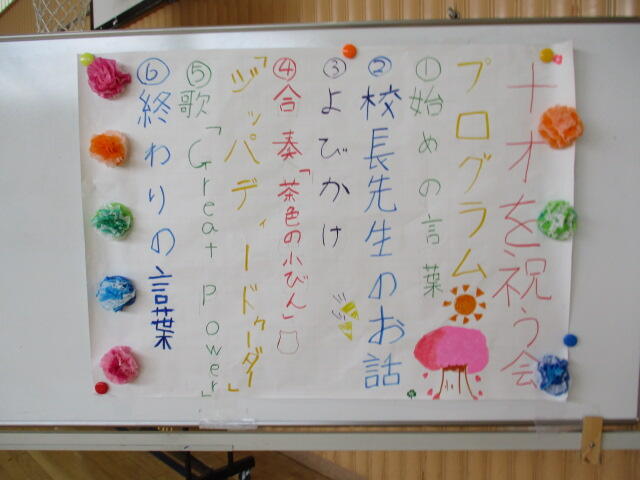 十才を祝う会
プログラム
①始めの言葉
②校長先生のお話
③よびかけ
④合奏「茶色の小びん」
「ジッパディードゥーダー」
⑤歌「Great Power」
⑥終わりの言葉